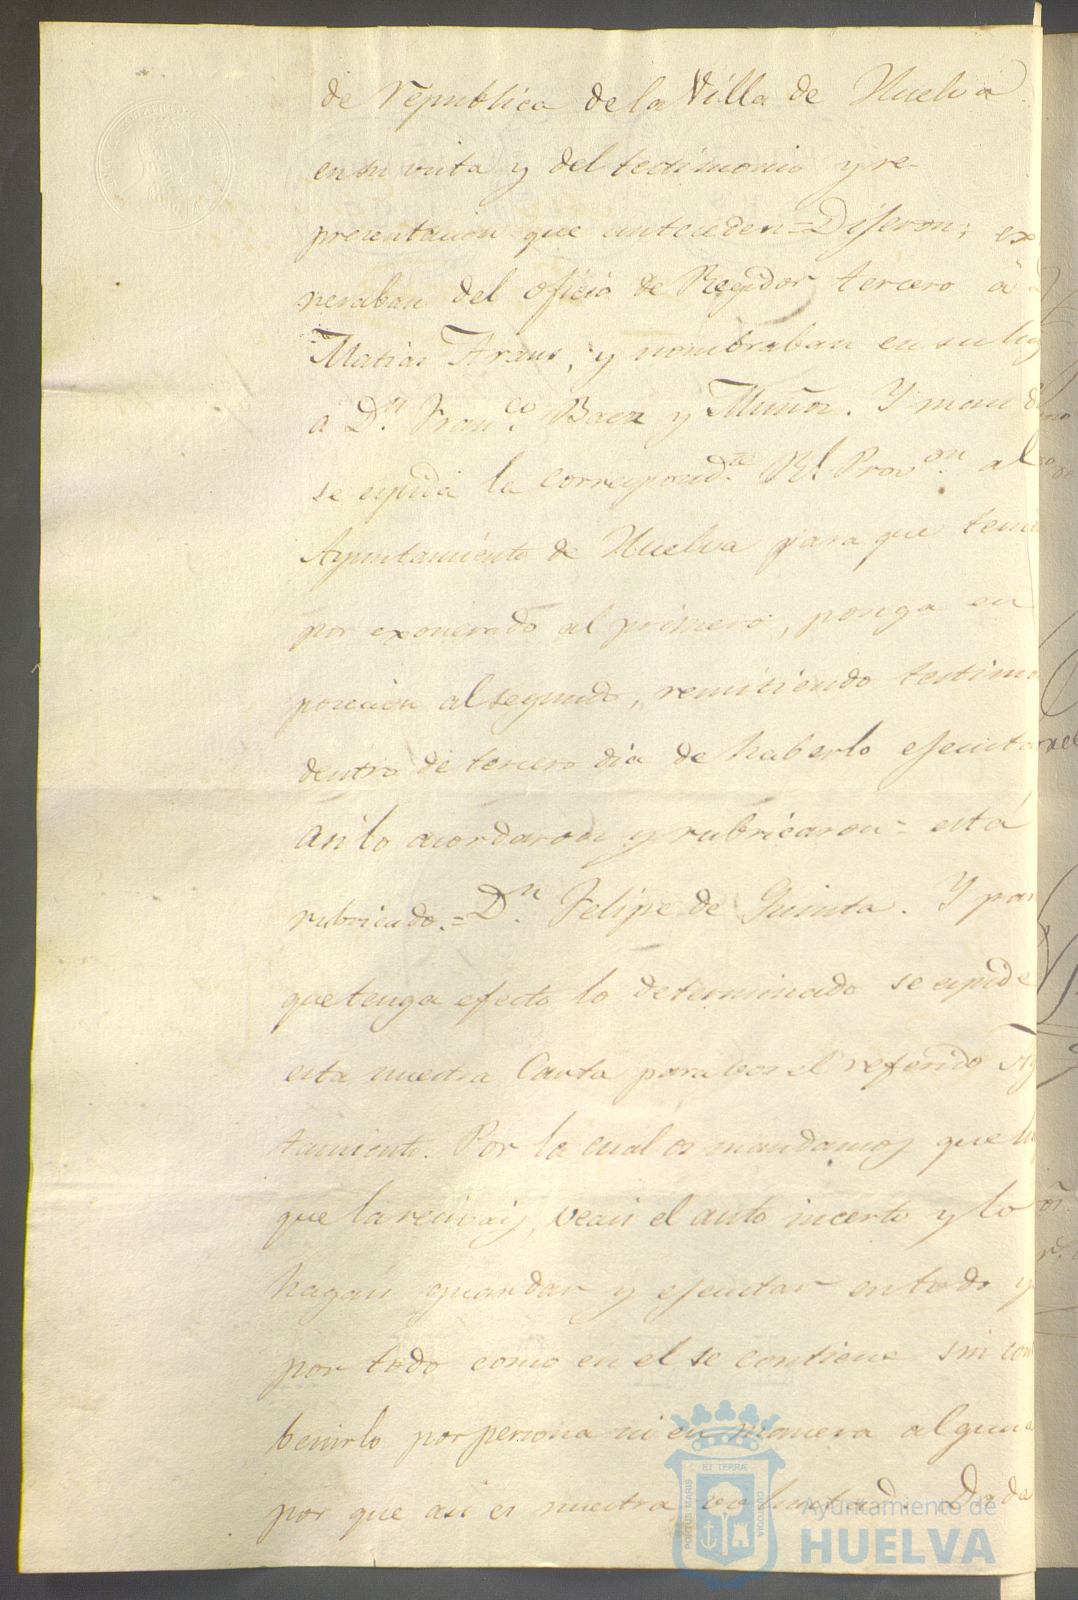 de republica de la Villa de Huelva
en su vista y del testimonio y re-
presentacion que anteceden = Dijeron; ex
neraban del oficio de Regidor tercero á
Matias Arauz, y nombraban en su lug
a Dn. Franco. Baez y Muñoz. Y man
se espida la correspondte. Rl. Provon. al
Ayuntamiento de Huelva para que teni
por exonerado al primero, ponga en
posecion al segundo, remitiendo testimo
dentro de tercero dia de haberlo ejecuta
asi lo acordaron y rubricaron = está
rubricado. = Dn. Felipe de Quinta. Y par
que tenga efecto lo determinado se espide
esta nuestra Carta para vos el referido Ay
tamiento. Por la cual os mandamos que lu
que la recivais, veais el auto incerto y lo
hagáis guardar y ejecutar en todo y
por todo como en el se contiene sin con
benirlo por persona ni en manera alguna
por que asi es nuestra voluntad. Dada
PORTUS MARIS ET TERRAE CUSTODIA
Ayuntamiento de
HUELVA